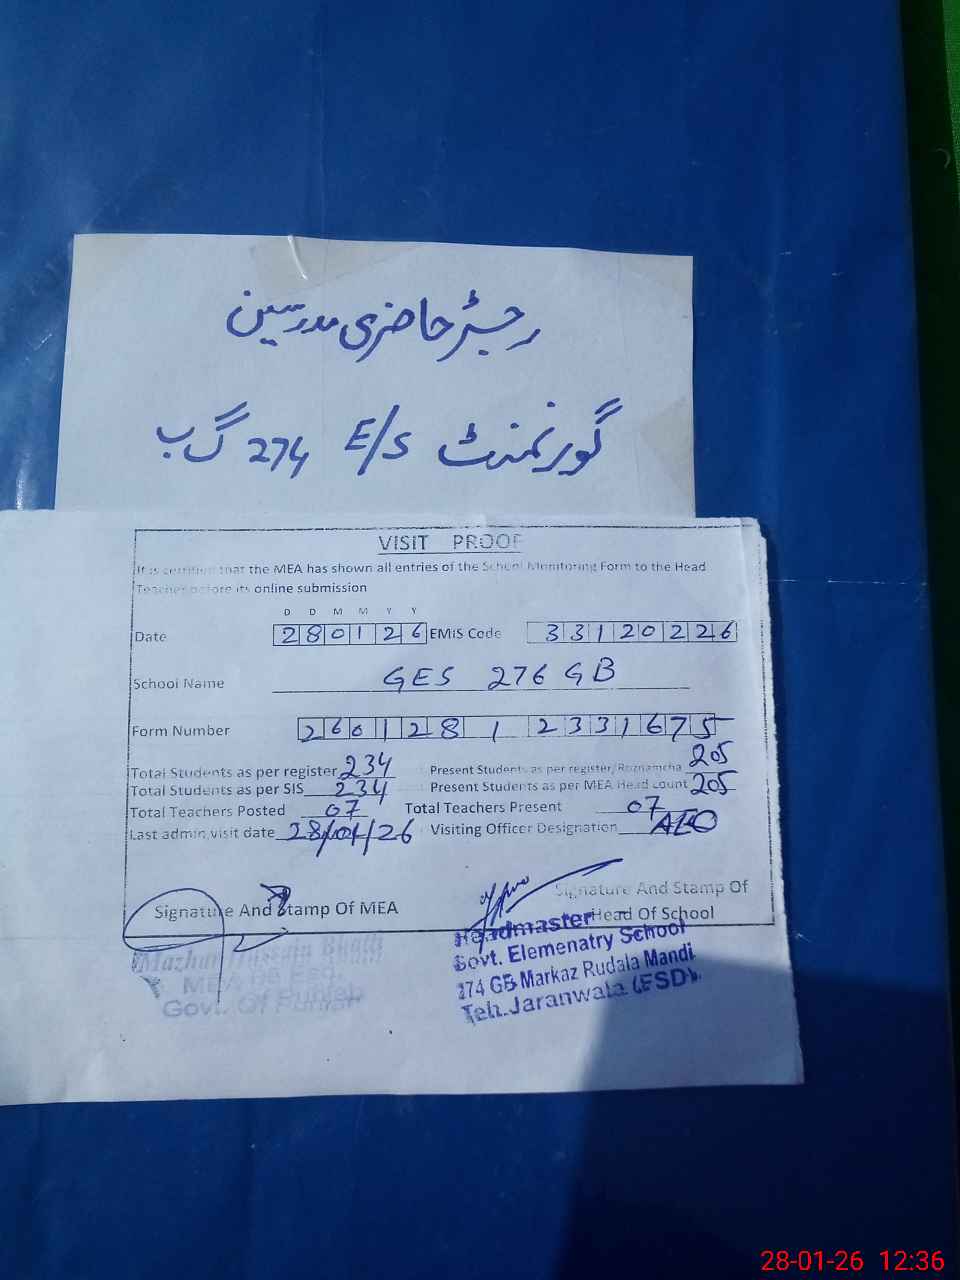 رجسٹر حاضری مدرسین
گورنمنٹ E/S 274 گ ب
VISIT PROOF
It is certified that the MEA has shown all entries of the School Monitoring Form to the Head
Teacher before its online submission
D D M M Y Y
Date 280126 EMIS Code 33120226
School Name GES 276 GB
Form Number 260128 1 2331675
Total Students as per register 234 Present Students as per register/Roznamcha 205
Total Students as per SIS 234 Present Students as per MEA Head count 205
Total Teachers Posted 07 Total Teachers Present 07
Last admin,visit date 28/01/26 Visiting Officer Designation AEO
Signature And Stamp Of MEA
Signature And Stamp Of
Head Of School
Mazhar Hussain Bhatti
Govt. Of Punjab
Headmaster
Govt. Elemenatry School
274 GB Markaz Rudala Mandi
Teh.Jaranwala (FSD).
28-01-26 12:36